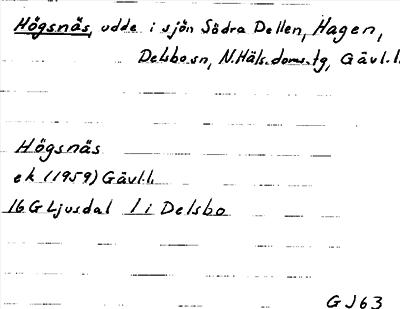 Högsnäs, udde i sjön Södra Dellen, Hagen,
Delsbo sn, N. Häls. doms. tg, Gävl. l.
Högsnäs
ek (1959) Gävl. l.
16 G Ljusdal 1 i Delsbo
GJ63